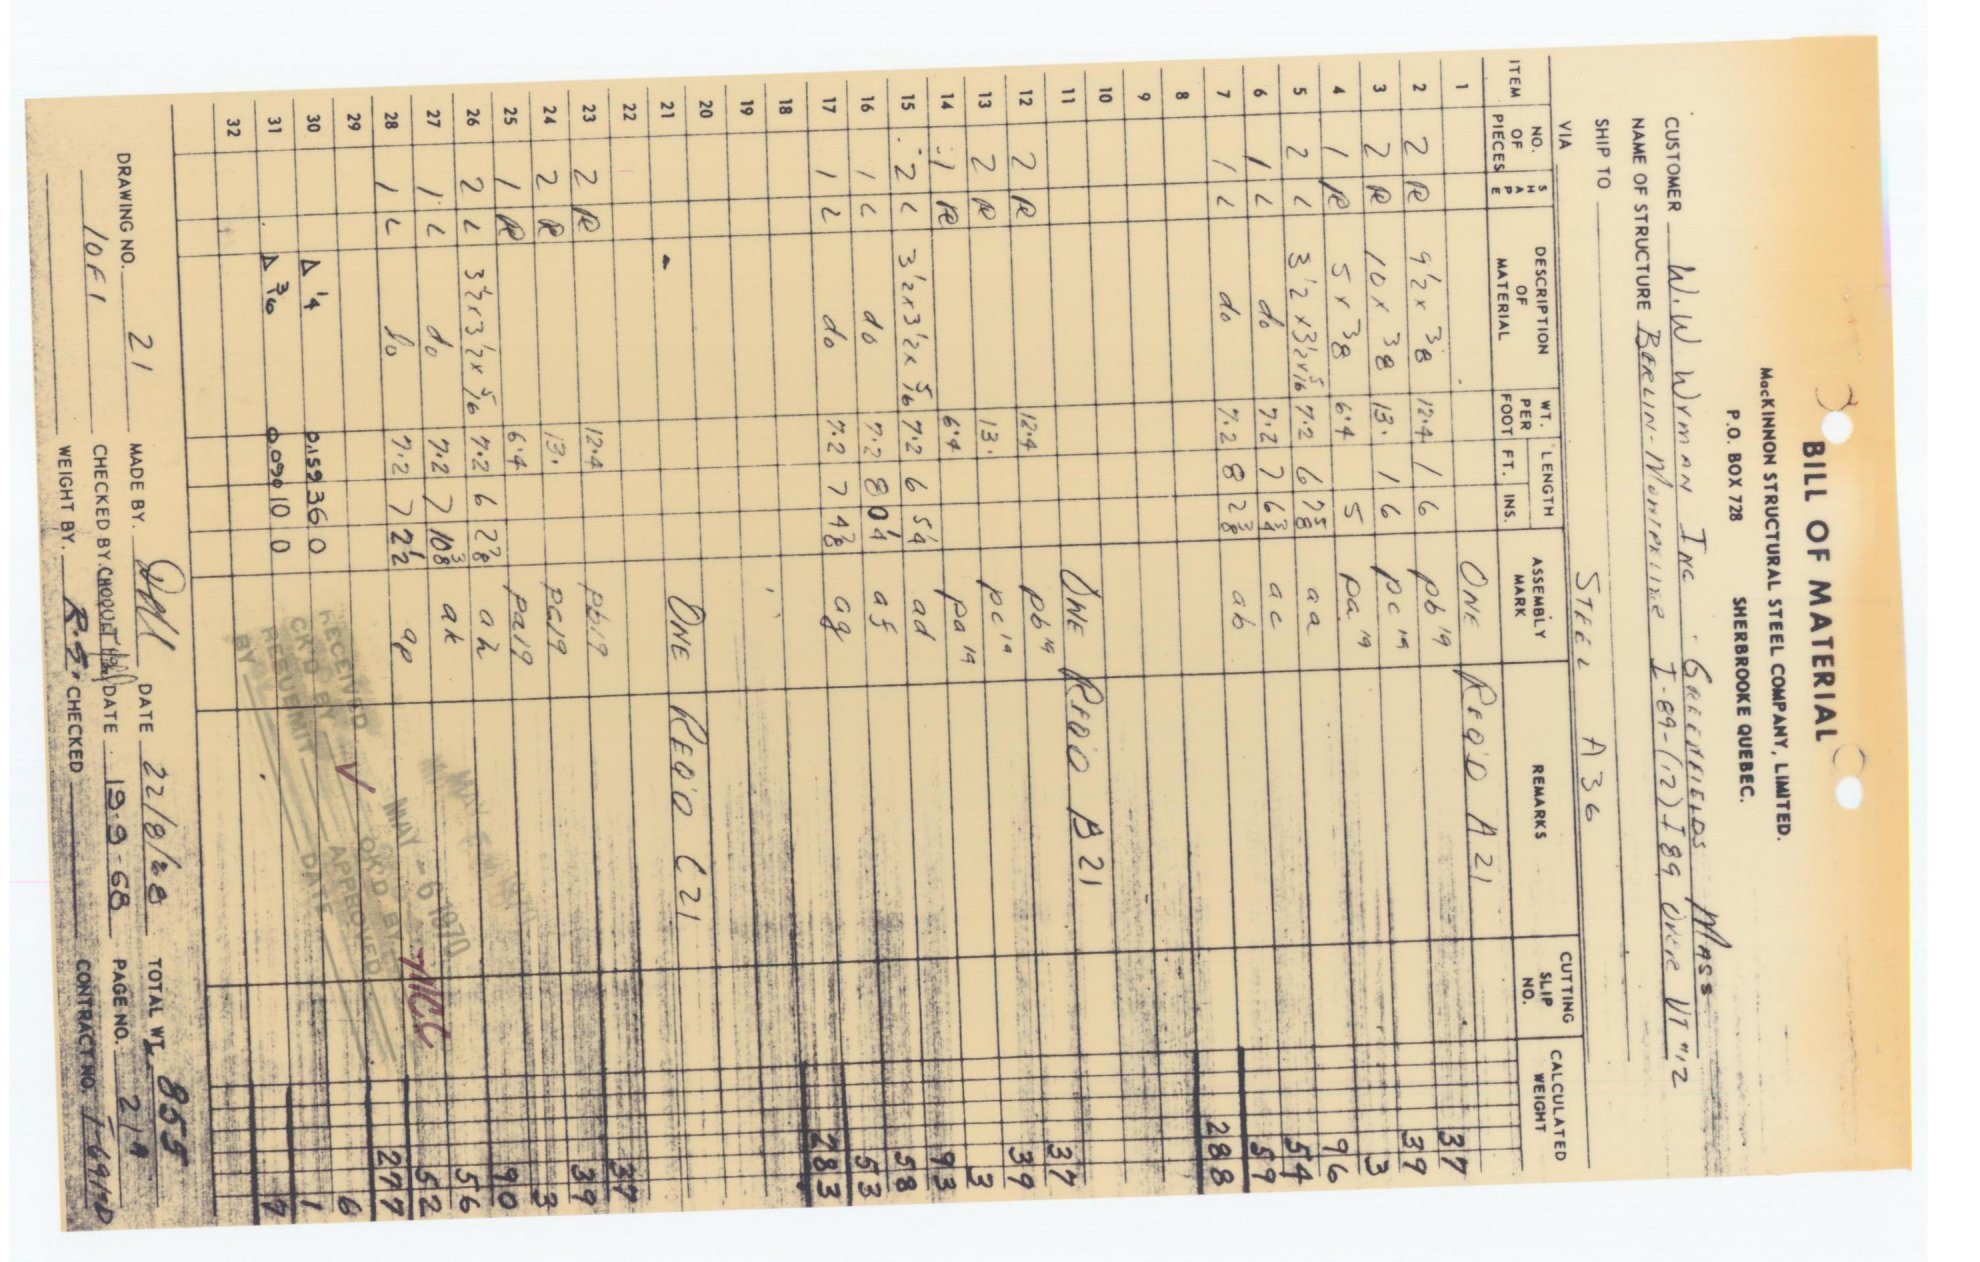 BILL OF MATERIAL
MacKINNON STRUCTURAL STEEL COMPANY, LIMITED.
P.O. BOX 728 SHERBROOKE QUEBEC.
CUSTOMER W.W WYMAN INC - GREENFIELDS MASS
NAME OF STRUCTURE BERLIN-MONTPELIER I-89-(12) I 89 OVER VT #12
SHIP TO
VIA STEEL A36
ITEM NO. OF PIECES SHAPE DESCRIPTION OF MATERIAL WT. PER FOOT LENGTH FT. INS. ASSEMBLY MARK REMARKS CUTTING SLIP NO. CALCULATED WEIGHT
1 ONE REQ'D A21 37
2 2 PL 9 1/2 x 3/8 12.4 1 6 pb 19 39
3 2 PL 10 x 3/8 13. 1 6 pc 19 3
4 1 PL 5 x 3/8 6.4 5 pa 19 96
5 2 L 3 1/2 x 3 1/2 x 5/16 7.2 6 7 5/8 aa 54
6 1 L do 7.2 7 6 3/4 ac 59
7 1 L do 7.2 8 2 3/8 ab 288
8
9
10
11 ONE REQ'D B21 37
12 2 PL 12.4 pb 19 39
13 2 PL 13. pc 19 3
14 1 PL 6.4 pa 19 93
15 2 L 3 1/2 x 3 1/2 x 5/16 7.2 6 5 1/4 ad 58
16 1 L do 7.2 8 0 1/4 af 53
17 1 L do 7.2 7 4 3/8 ag 283
18
19
20
21 ONE REQ'D C21
22 37
23 2 PL 12.4 pb19 39
24 2 PL 13. pc19 3
25 1 PL 6.4 pa19 90
26 2 L 3 1/2 x 3 1/2 x 5/16 7.2 6 2 7/8 ah 56
27 1 L do 7.2 7 10 3/8 ak 52
28 1 L do 7.2 7 2 1/2 ap 277
29 6
30 Δ 1/4 0.159 36 0 1
31 Δ 3/16 0.090 10 0 7
32
RECEIVED
CK'D BY
RESUBMIT
BY
MAY - 6 1970
OK'D BY
APPROVED
DATE
MCC
DRAWING NO. 21 MADE BY. DATE 22/8/68 TOTAL WT. 855
1 OF 1 CHECKED BY. CHOQUETTE DATE 19-9-68 PAGE NO. 21A
WEIGHT BY. R.G. CHECKED CONTRACT NO.